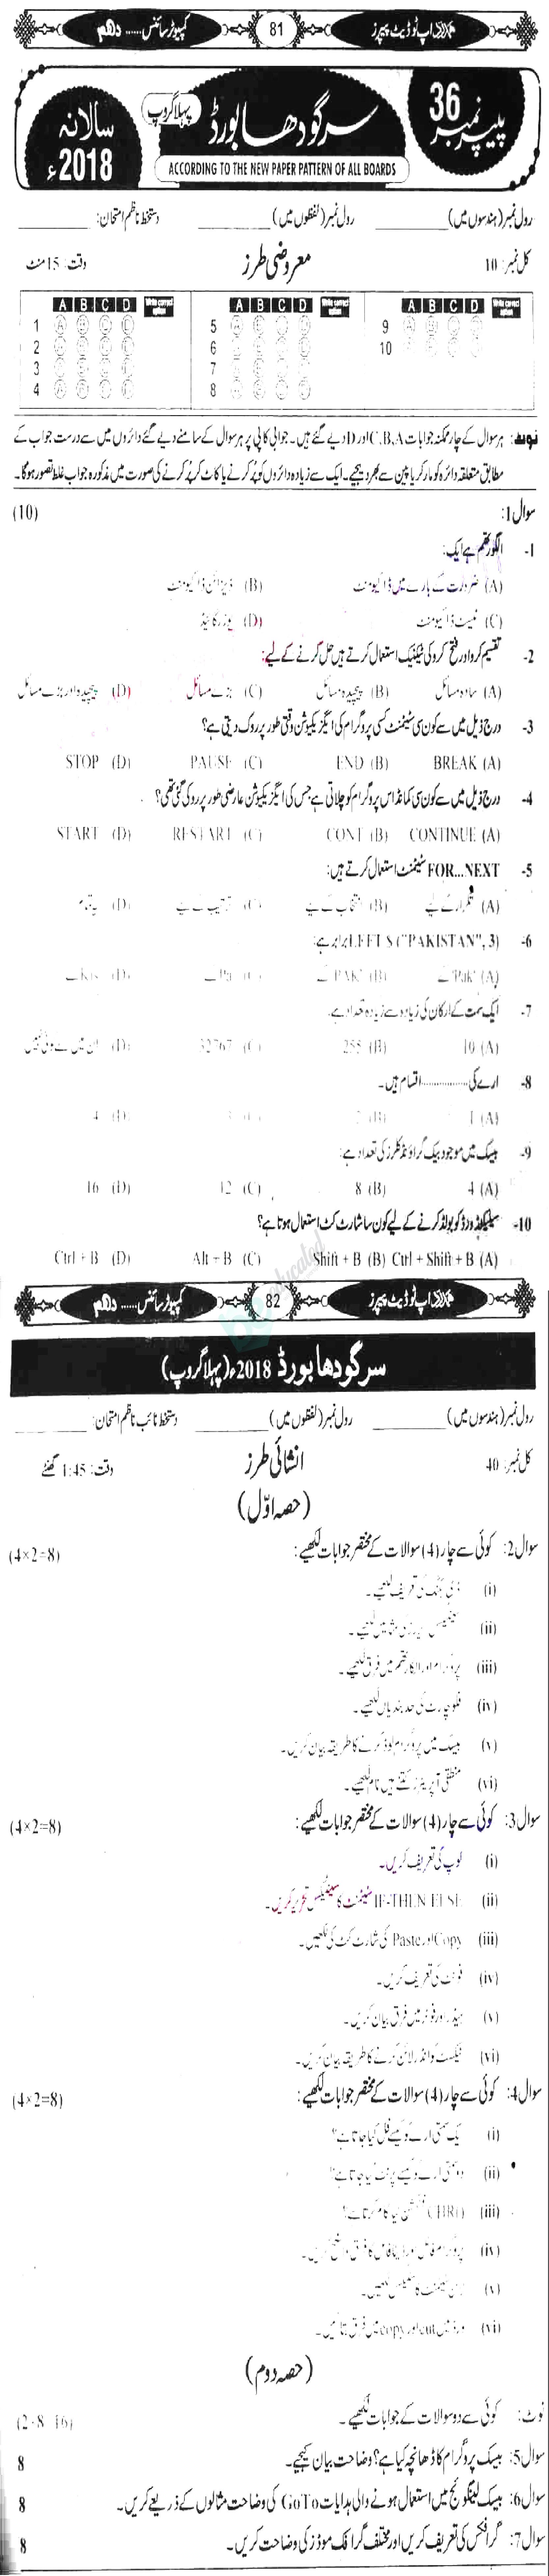 ہمدرد اپ ٹو ڈیٹ پیپرز 81 کمپیوٹر سائنس...... دہم
پیپر نمبر 36
سرگودھا بورڈ
پہلا گروپ
سالانہ 2018ء
ACCORDING TO THE NEW PAPER PATTERN OF ALL BOARDS
رول نمبر (ہندسوں میں) رول نمبر (لفظوں میں) دستخط ناظم امتحان:
کل نمبر: 10 معروضی طرز وقت: 15 منٹ
A B C D Write correct option A B C D Write correct option A B C D Write correct option
1 5 9
2 6 10
3 7
4 8
نوٹ: ہر سوال کے چار ممکنہ جوابات C،B،A اور D دیے گئے ہیں۔ جوابی کاپی پر ہر سوال کے سامنے دیے گئے دائروں میں سے درست جواب کے
مطابق متعلقہ دائرہ کو مارکر یا پین سے بھر دیجیے۔ ایک سے زیادہ دائروں کو پُر کرنے یا کاٹ کر پُر کرنے کی صورت میں مذکورہ جواب غلط تصور ہوگا۔
سوال 1: (10)
1- الگورتھم ہے ایک:
(A) ضرورت کے بارے میں ڈاکیومنٹ (B) ڈیزائن ڈاکیومنٹ
(C) ٹیسٹ ڈاکیومنٹ (D) یوزر گائیڈ
2- تقسیم کرو اور فتح کرو کی ٹیکنیک استعمال کرتے ہیں حل کرنے کے لیے:
(A) سادہ مسائل (B) پیچیدہ مسائل (C) بڑے مسائل (D) پیچیدہ اور بڑے مسائل
3- درج ذیل میں سے کون سی سٹیٹمنٹ کسی پروگرام کی ایگزیکیوشن وقتی طور پر روک دیتی ہے؟
(A) BREAK (B) END (C) PAUSE (D) STOP
4- درج ذیل میں سے کون سی کمانڈ اس پروگرام کو چلاتی ہے جس کی ایگزیکیوشن عارضی طور پر روکی گئی تھی؟
(A) CONTINUE (B) CONT (C) RESTART (D) START
5- FOR...NEXT سٹیٹمنٹ استعمال کرتے ہیں:
(A) تکرار کے لیے (B) انتخاب کے لیے (C) ترتیب کے لیے (D) یہ تمام
6- LEFT$ ("PAKISTAN", 3) برابر ہے:
(A) "Pak" کے (B) "PAK" کے (C) Pa کے (D)
7- ایک سمت کے ارکان کی زیادہ سے زیادہ تعداد ہے:
(A) 10 (B) 255 (C) 32767 (D) ان میں سے کوئی نہیں
8- ارے کی .............. اقسام ہیں۔
(A) 1 (B) 2 (C) 3 (D) 4
9- بیسک میں موجود بیک گراؤنڈ کلرز کی تعداد ہے:
(A) 4 (B) 8 (C) 12 (D) 16
10- سلیکٹڈ ورڈ کو بولڈ کرنے کے لیے کون سا شارٹ کٹ استعمال ہوتا ہے؟
(A) Ctrl + Shift + B (B) Shift + B (C) Alt + B (D) Ctrl + B
ہمدرد اپ ٹو ڈیٹ پیپرز 82 کمپیوٹر سائنس...... دہم
سرگودھا بورڈ 2018ء (پہلا گروپ)
رول نمبر (ہندسوں میں) رول نمبر (لفظوں میں) دستخط نائب ناظم امتحان:
کل نمبر: 40 انشائی طرز وقت: 1:45 گھنٹے
(حصہ اوّل)
سوال 2: کوئی سے چار (4) سوالات کے مختصر جوابات لکھیے: (4×2=8)
(i) ڈی بگنگ کی تعریف لکھیے۔
(ii) لکھیے۔
(iii) پروگرام اور الگورتھم میں فرق لکھیے۔
(iv) فلوچارٹ کی حد بندیاں لکھیے۔
(v) بیسک میں پروگرام لوڈ کرنے کا طریقہ بیان کریں۔
(vi) منطقی آپریٹرز کتنے ہیں نام لکھیے۔
سوال 3: کوئی سے چار (4) سوالات کے مختصر جوابات لکھیے: (4×2=8)
(i) لوپ کی تعریف کریں۔
(ii) IF-THEN ELSE سٹیٹمنٹ کا سینٹیکس تحریر کریں۔
(iii) Copy اور Paste کی شارٹ کٹ کی لکھیں۔
(iv) فونٹ کی تعریف کریں۔
(v) ہیڈر اور فوٹر میں فرق بیان کریں۔
(vi) ٹیکسٹ کو انڈر لائن کرنے کا طریقہ بیان کریں۔
سوال 4: کوئی سے چار (4) سوالات کے مختصر جوابات لکھیے: (4×2=8)
(i) یک سمتی ارے کو کیسے فل کیا جاتا ہے؟
(ii) دو سمتی ارے کو کیسے پرنٹ کیا جاتا ہے؟
(iii) فنکشن کیا کام کرتا ہے؟
(iv) پروگرام فائل اور ڈیٹا فائل کا فرق واضح کریں۔
(v) سٹیٹمنٹ کا سینٹیکس لکھیں۔
(vi) ورڈ میں cut اور copy میں فرق بتائیں۔
(حصہ دوم)
نوٹ: کوئی سے دو سوالات کے جوابات لکھیے۔ (2×8=16)
سوال 5: بیسک پروگرام کا ڈھانچہ کیا ہے؟ وضاحت بیان کیجیے۔ 8
سوال 6: بیسک لینگوئج میں استعمال ہونے والی ہدایات GoTo کی وضاحت مثالوں کے ذریعے کریں۔ 8
سوال 7: گرافکس کی تعریف کریں اور مختلف گرافک موڈز کی وضاحت کریں۔ 8